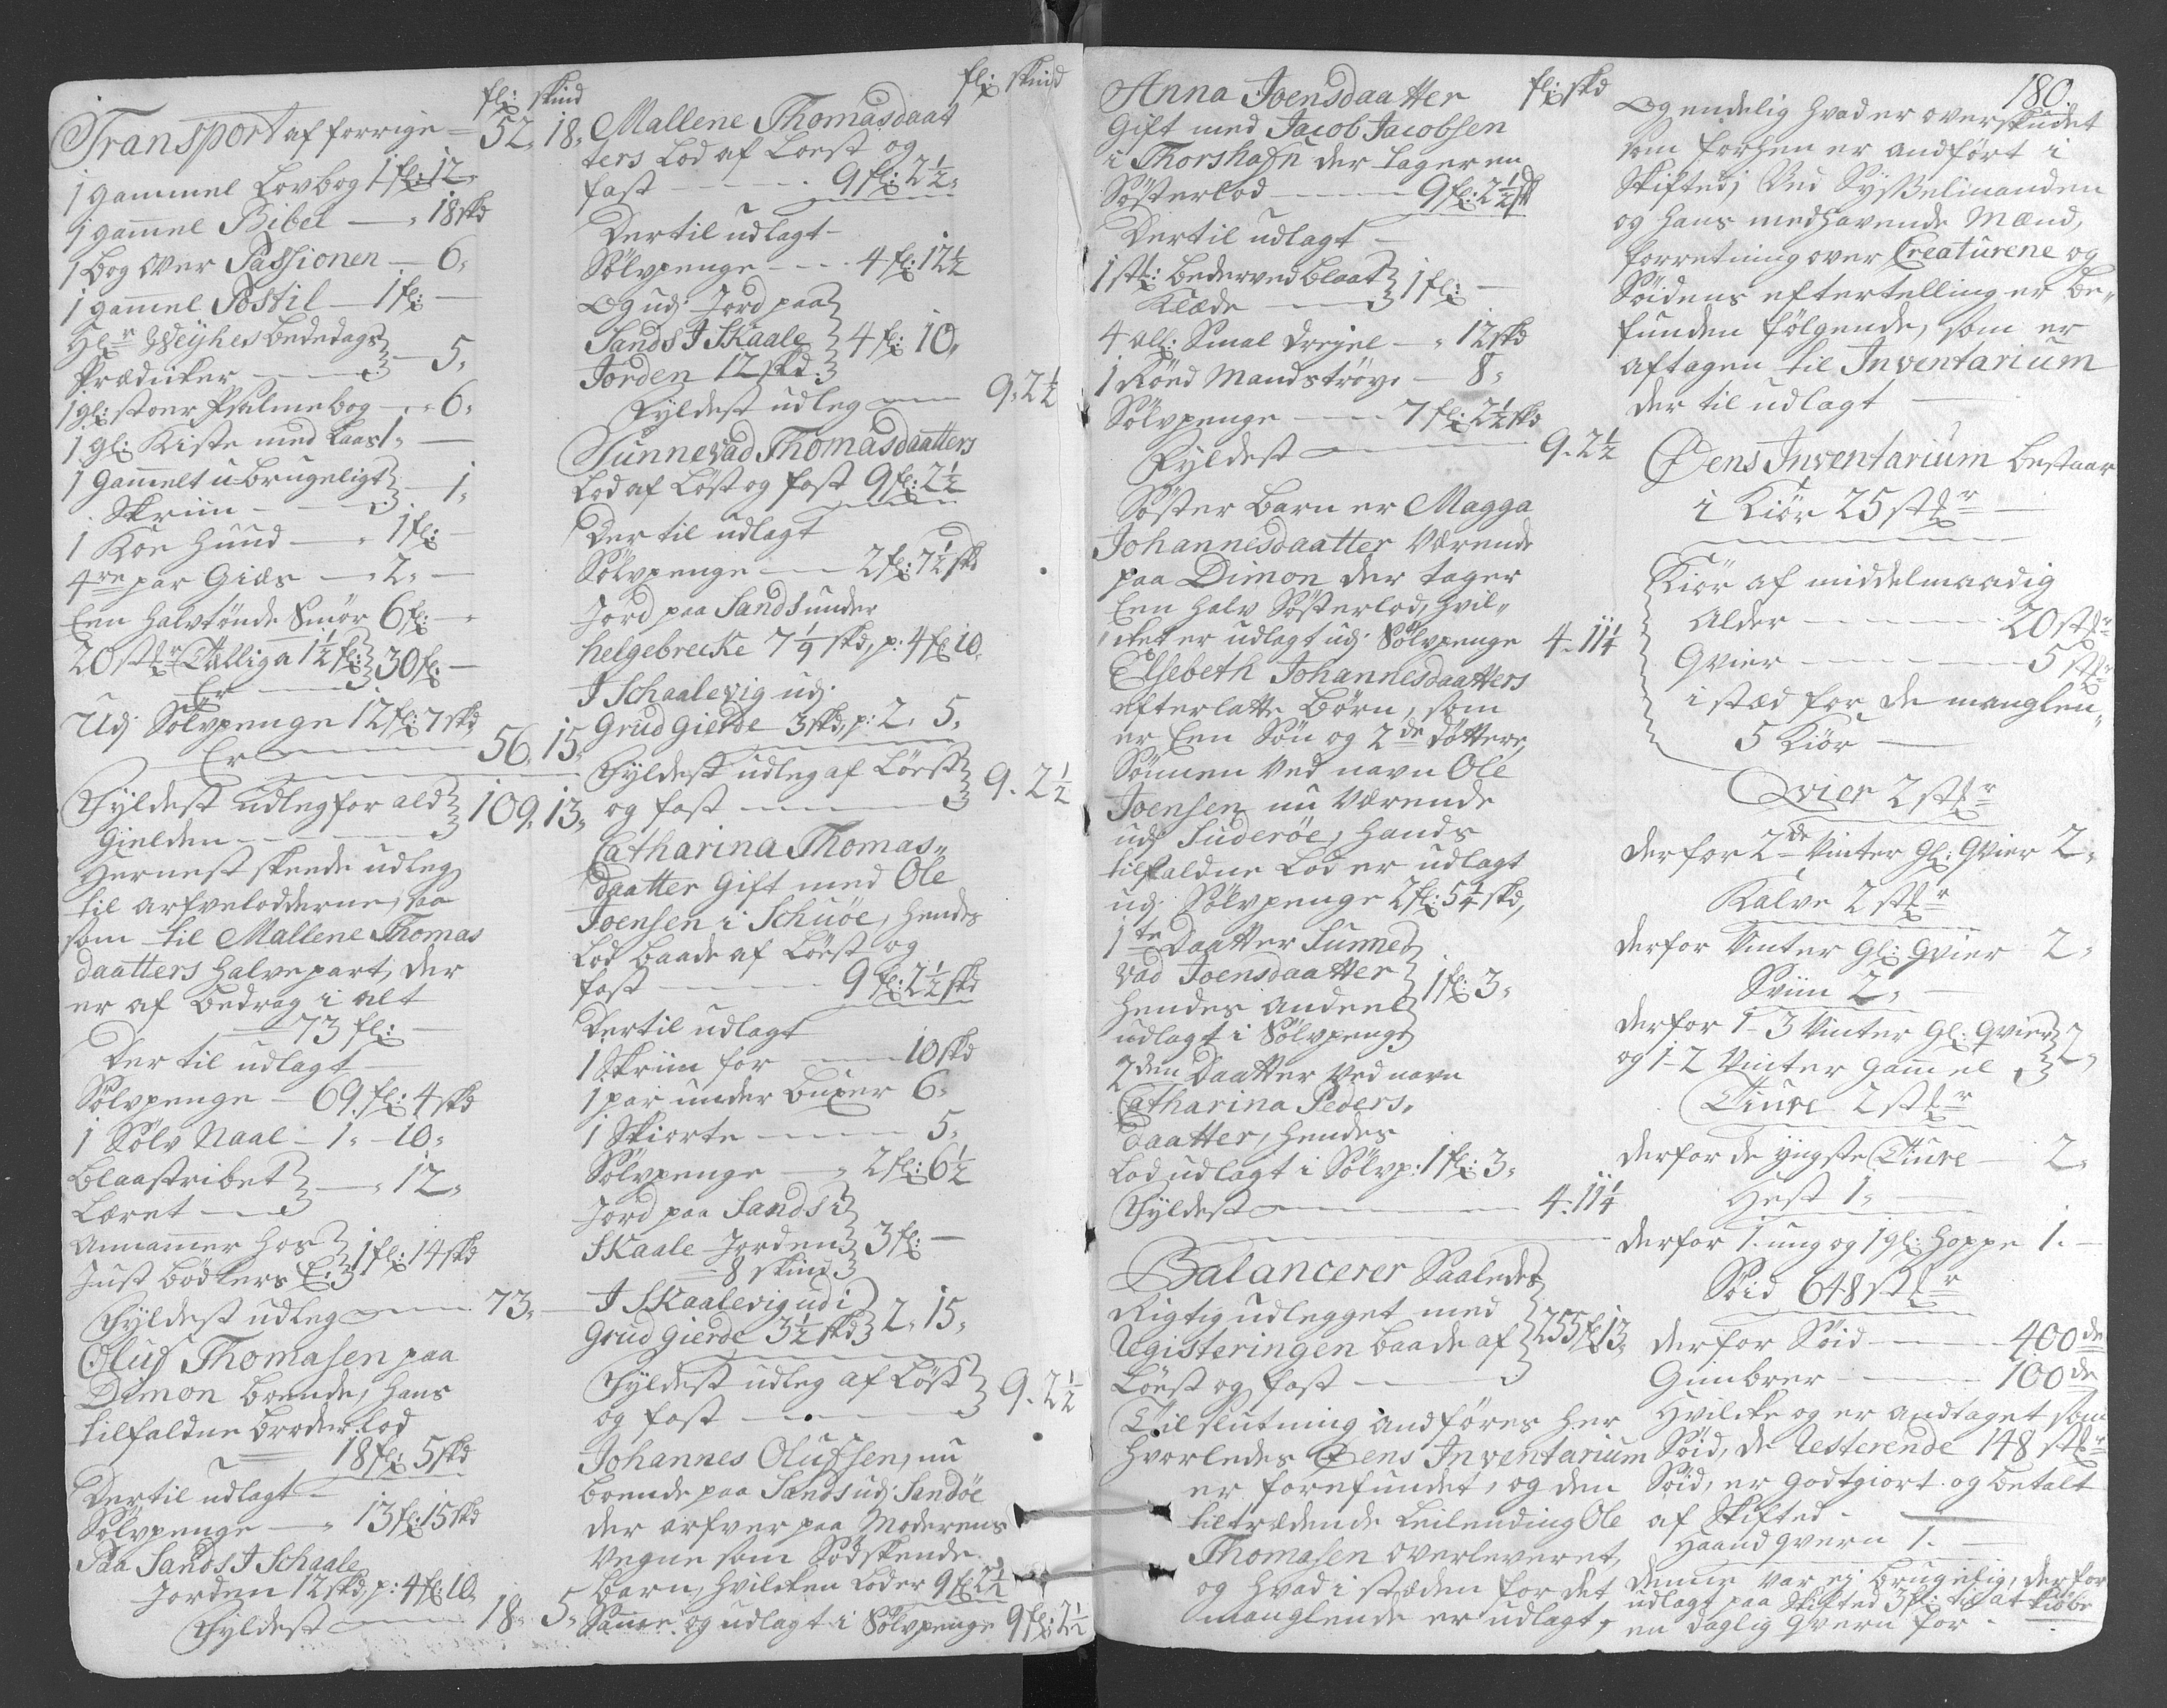 fl: skind
Transport af forrige — 52, 18,
1 gammel Lovbog 1 fl: 12,
1 gamel Bibel — „ 18 skd
1 bog over Passionen — 6,
1 gamel Postil — 1 fl: —
Hr Weyhes bededags
Prædicker — 5,
1 gl: stoer Psalmebog — „ 6,
1 gl: Kiste med Laas 1, —
1 Gamelt u-brugeligt
Skriin — 1,
1 Koe Hund — „ 1 fl: —
4re par Giæs — „ 2, —
Een halvtönde Smör 6 fl: —
20 stkr Tælliga 1½ fl:
Er — 30 fl: —
Udj Sölvpenge 12 fl: 7 skd,
Er — 56, 15,
Fyldest udleg for ald
Gielden — 109, 13,
Hernest skeede udleg
til arfvelodderne, saa
som til Mallene Thomas
daatters halvepart, der
er af bedrag i alt
— 73 fl: —
Der til udlagt —
Sölvpenge — 69 fl: 4 skd
1 Sölv Naal — 1, — 10,
Blaastribet
Læret — „ 12,
Annamer hos
Just Bödkers E: 1 fl: 14 skd
Fyldest udleg — 73, —
Oluf Thomasen paa
Dimon boende, hans
tilfaldne broder lod
18 fl: 5 skd
Dertil udlagt —
Sölvpenge — „ 13 fl: 15 skd
Paa Sands I Schaale
Jorden 12 skd, p: 4 fl: 10,
Fyldest — 18, 5,
fl: skind
Mallene Thomasdaat
ters Lod af Löest og
fast — 9 fl: 2½,
Dertil udlagt —
Sölvpenge — 4 fl: 12½
Og udj Jord paa
Sands I Skaale
Jorden 12 skd: 4 fl: 10,
Fyldest udleg — 9, 2½
Sunnevad Thomasdaatters
Lod af Löst og fast 9 fl: 2½
Der til udlagt
Sölvpenge — 2 fl: 7½ skd
Jord paa Sands under
helgebrecke 7½ skd, p: 4 fl 10.
I Schaalevig udj
Grud gierde 3 skd, p: 2, 5,
Fyldest udleg af Löest
og fast — 9. 2½
Catharina Thomas„
daatter Gift med Ole
Joensen i Schuöe, hendes
Lod baade af Löest og
fast — 9 fl: 2½ skd
Dertil udlagt
1 Skriin for — 10 skd
1 par under buxer 6,
1 Skiorte — 5,
Sölvpenge — „ 2 fl: 6½
Jord paa Sands i
Skaale Jorden 3 fl: —
8 skind
I Skaalevig udi
Grud Gierde 3½ skd 2, 15,
Fyldest udleg af Löst
og fast — 9. 2½
Johannes Olufsen, nu
boende paa Sands udj Sandöe
der arfver paa Moderens
vegne som Södskende
barn, hvilcken Lod er 9 fl 2½
Same og udlagt i Sölvpenge 9 fl: 2½
Anna Joensdaatter fl: skd
Gift med Jacob Jacobsen
i Thorshafn der tager en
Sösterlod — 9 fl: 2½ skd
Dertil udlagt —
1 stk: bederved blaat
Klæde — 1 fl: —
4 all: Smal Dreyel — „ 12 skd
1 Röed Mandströye — 8,
Sölvpenge — 7 fl: 2½ skd
Fyldest — 9. 2½
Söster Barn er Magga
Johannesdaatter værende
paa Dimon der tager
Een halv Sösterlod, hvil„
cket er udlagt udj Sölvpenge 4. 11¼
Elsebeth Johannesdaatters
efterlatte Börn, som
er Een Sön og 2de döttere,
Sönnen ved navn Ole
Joensen nu værende
udj Suderöe, hands
tilfaldne Lod er udlagt
udj Sölvpenge 2 fl: 5¼ skd,
1te Daatter Sunne
vad Joensdaatter
hendes andeel 1 fl: 3,
udlagt i Sölvpenge
2den Daatter ved navn
Catharina Peders„
daatter, hendes
Lod udlagt i Sölvp: 1 fl: 3,
Fyldest — 4. 11¼
Balancerer Saaledes
Rigtig udlegget med
Registeringen baade af 255 fl 13,
Löest og fast —
Til slutning andföres her
hvorledes Öens Inventarium
er forefundet, og den
tiltrædende Leilending Ole
Thomasen overleveret,
og hvad i stæden for det
manglende er udlagt,
180.
Og endelig hvad er overskudet
som forhen er andfört i
Skiftet; Ved Sysselmanden
og hans medhavende Mænd,
forretning over Creaturene og
Söidens eftertelling er be„
funden fölgende, som er
aftagen til Inventarium
der til udlagt —
Öens Inventarium bestaar
i Kiör 25 stkr —
Kiör af middelmaadig
Alder — 20 stkr
Qvier — 5 stkr
i stæd for de manglen„
5 Kiör —
Qvier 2 stkr
derfor 2de Vinter Gl: Qvier 2,
Kalve 2 stkr
derfor Vinter Gl: Qvier 2,
Sviin 2, —
derfor 1-3 Vinter Gl: Qvie
og 1-2 Vinter gamel 2,
Tiure 2 stkr
derfor de yngste Tiure — 2,
Hest 1, —
derfor 1. ung og 1 gl: Hoppe 1. —
Söid 648 stkr
derfor Söid — 400de
Gimbrer — 100de
Hvilcke og er andtaget som
Söid, de Resterende 148 stkr
Söid, er godtgiort og betalt
af Skifted —
Haand Qvern 1. —
denne var ej brugelig, derfor
udlagt paa Skifted 3 fl: til at kiöbe
en daglig Qvern for —